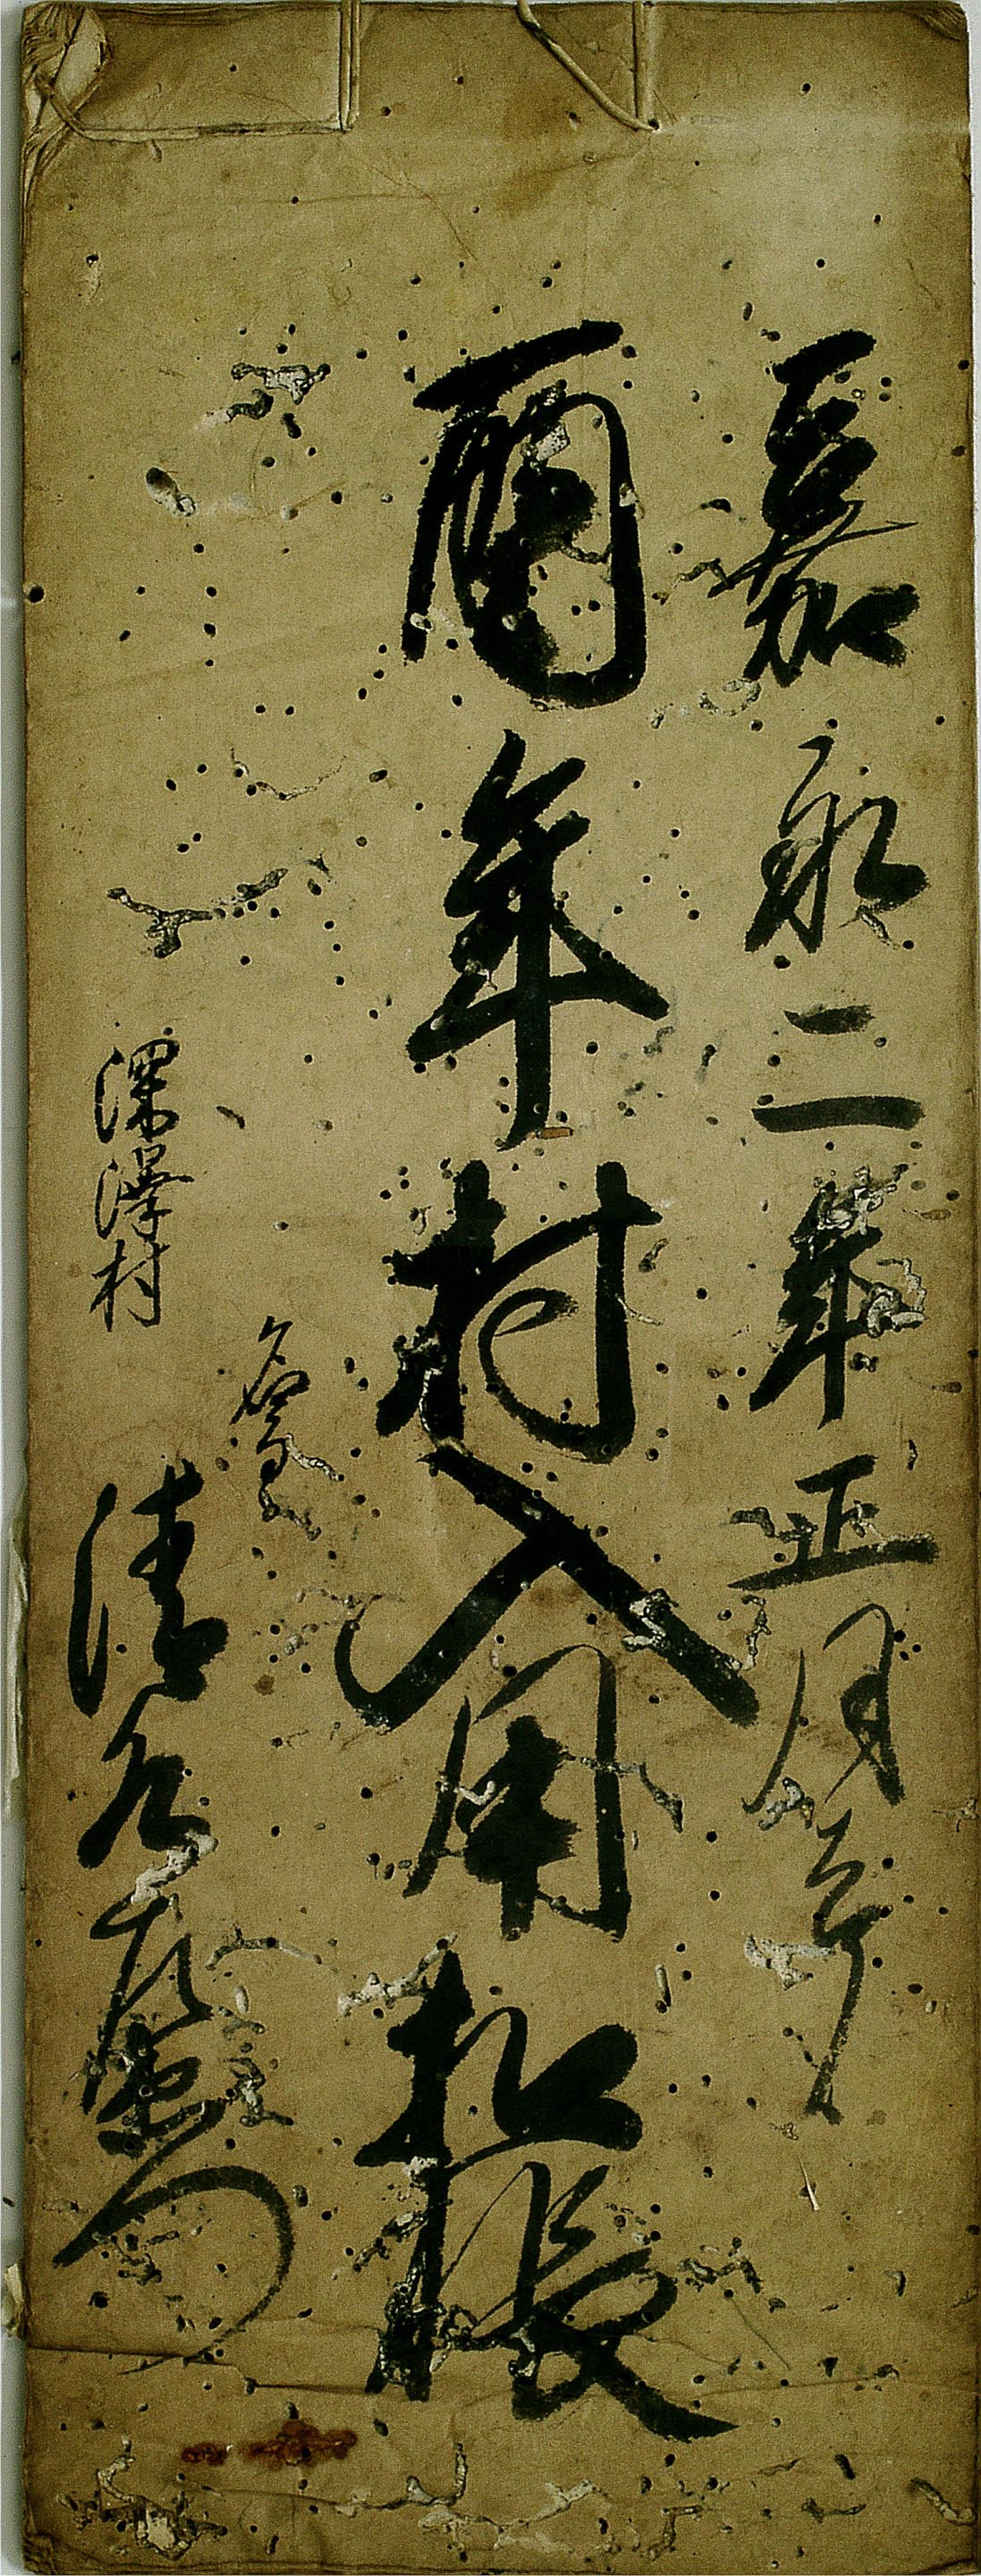 嘉永二年正月
酉年村入用払帳
深澤村
清左衛門